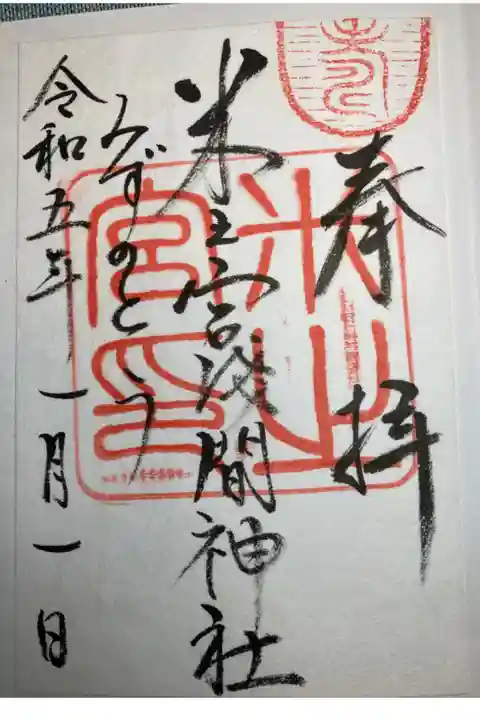 奉拝
米之宮浅間神社
みずのとう
令和五年一月一日
米之宮印